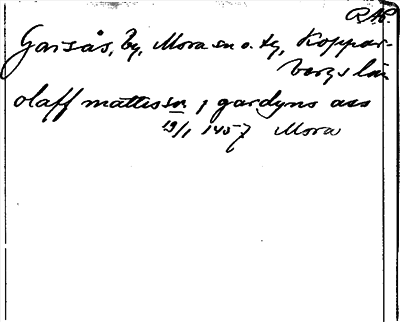 RAP.
Garsås, by, Mora sn o. tg, Koppar-
bergs län
olaff mattisson j gardyns ass
19/1 1457 Mora